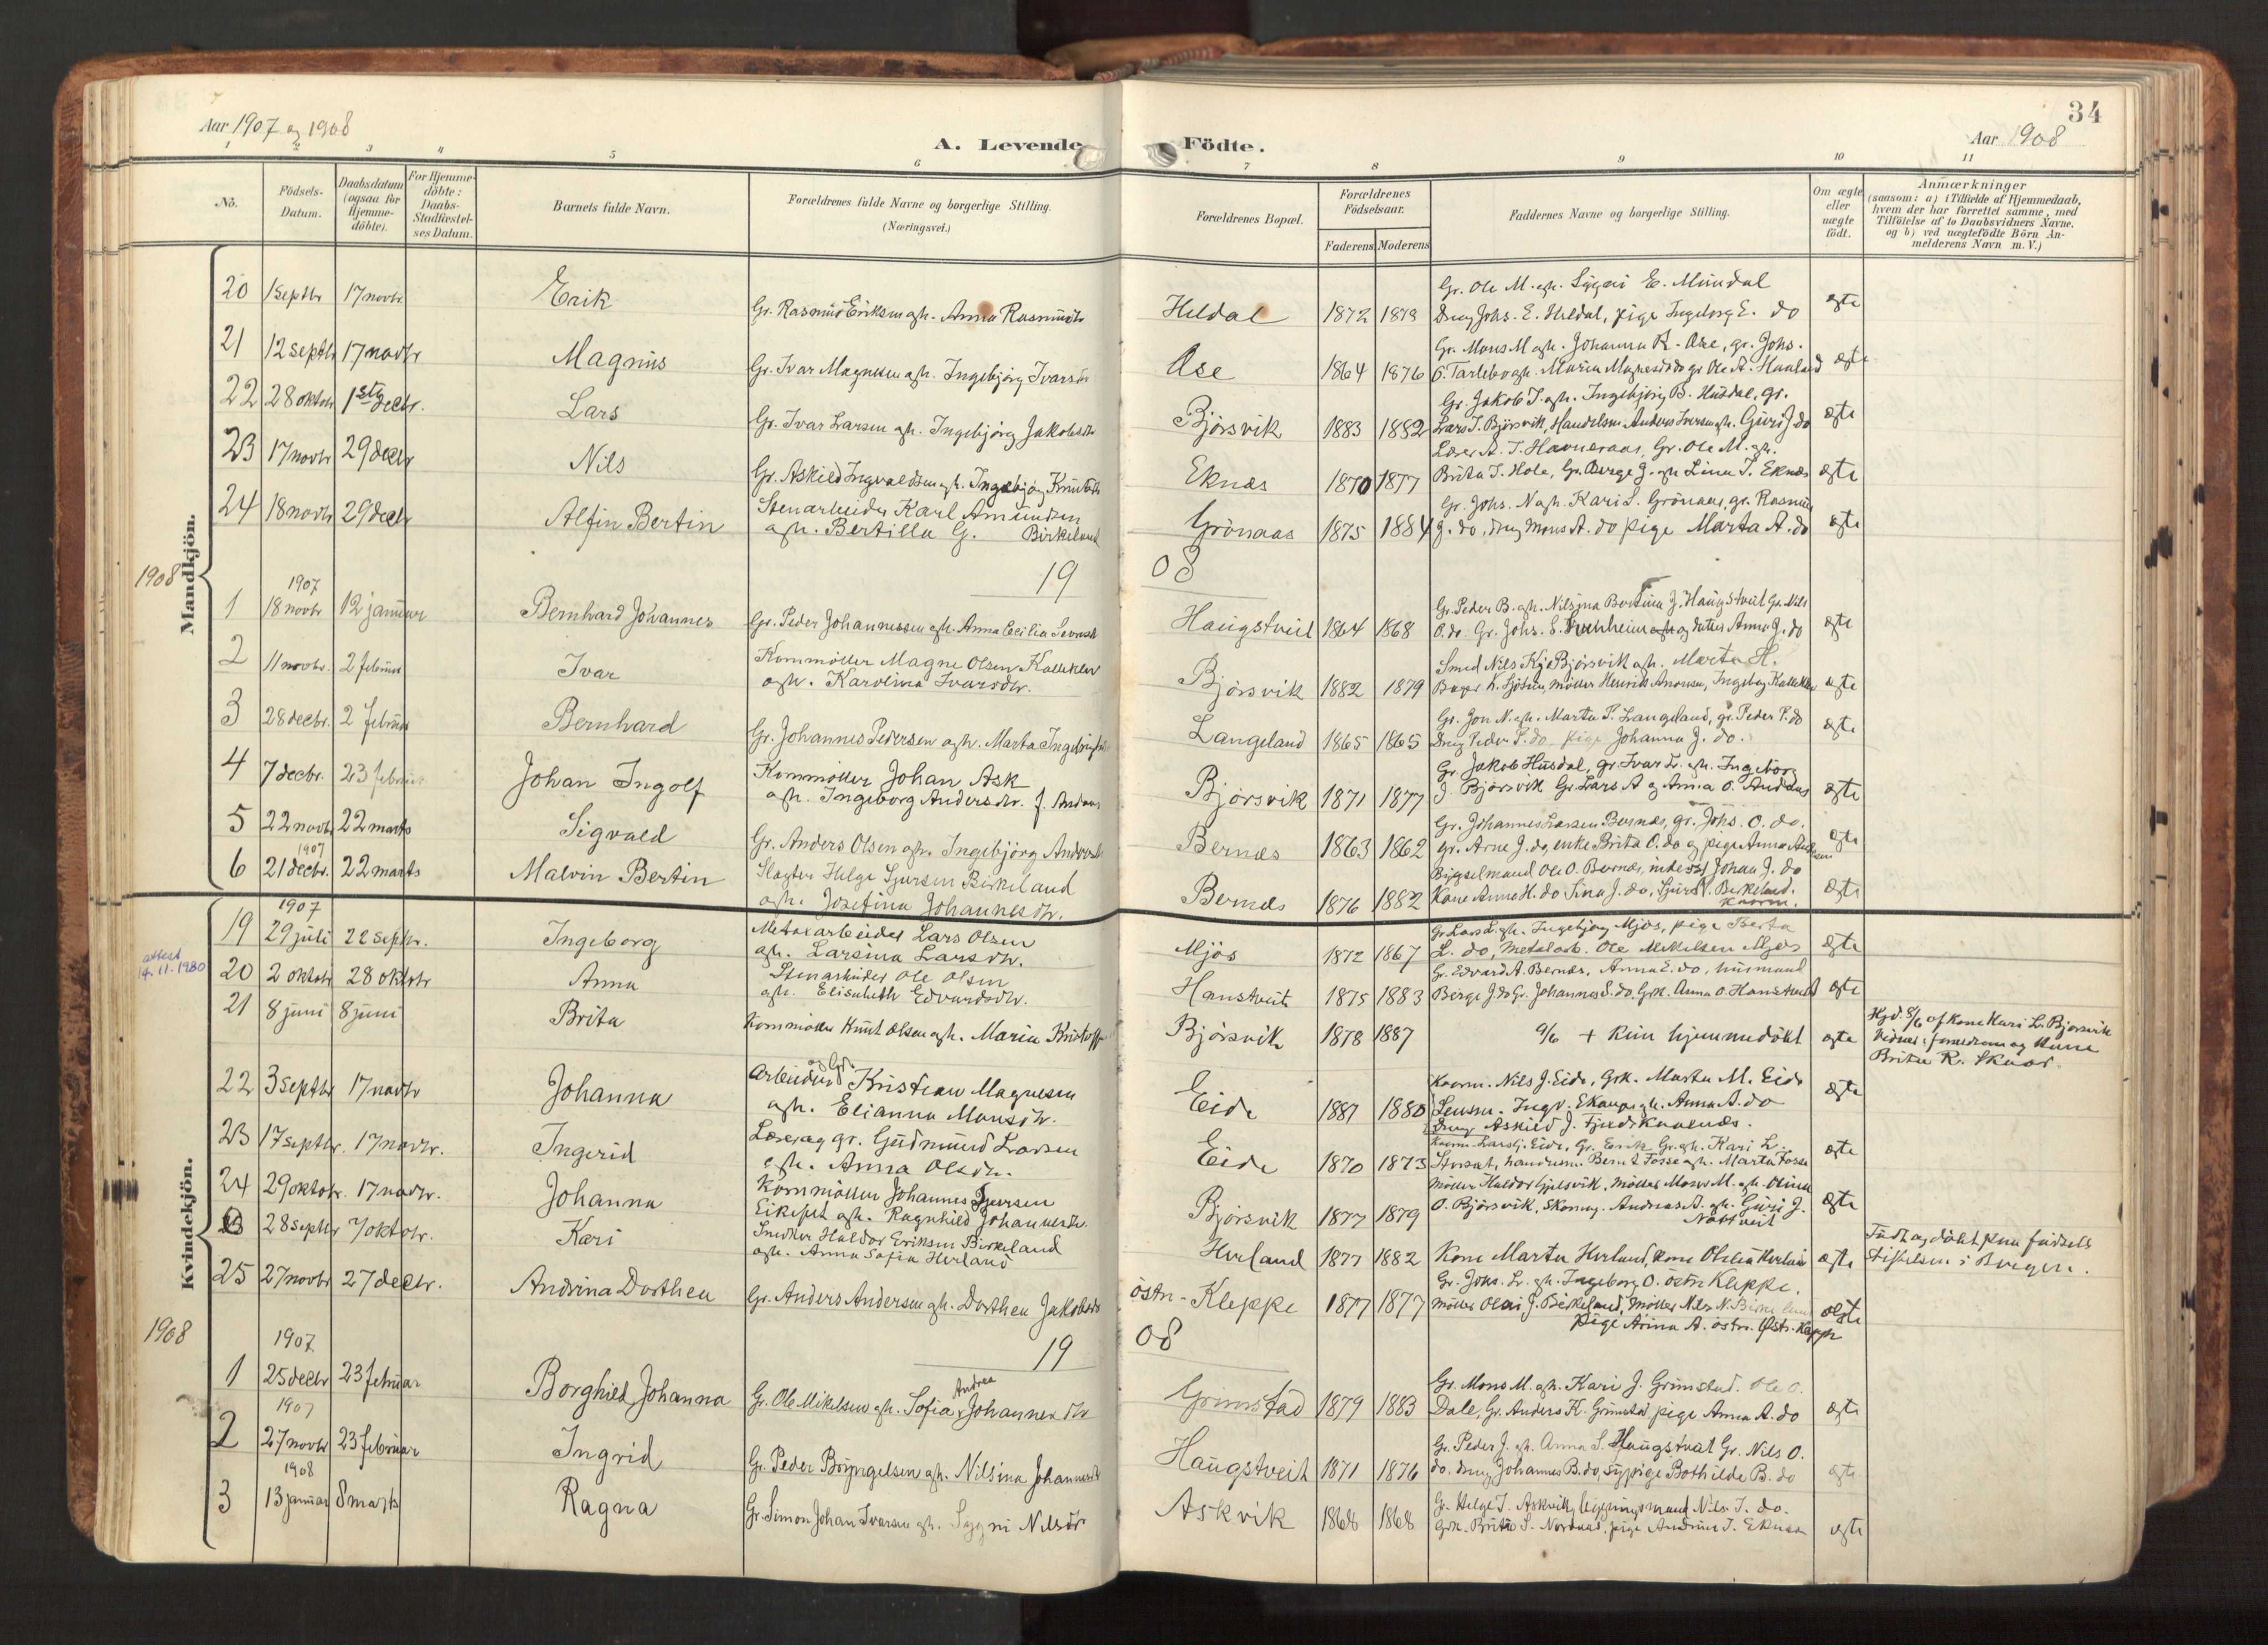 34
Aar 1907 og 1908
A. Levende Födte.
Aar 1908
1 2 3 4 5 6 7 8 9 10 11
Nö. Födsels-Datum. Daabsdatum (ogsaa for Hjemme-döbte). For Hjemme-döbte: Daabs-Stadfæstel-ses Datum. Barnets fulde Navn. Forældrenes fulde Navne og borgerlige Stilling. (Næringsvei.) Forældrenes Bopæl. Forældrenes Födselsaar. Faderens Moderens Faddernes Navne og borgerlige Stilling. Om ægte eller uægte födt. Anmærkninger (saasom: a) i Tilfælde af Hjemmedaab, hvem der har forrettet samme, med Tilföielse af to Daabsvidners Navne, og b) ved uægtefödte Börn An-melderens Navn m. V.)
Mandkjön.
20 1 septbr 17 novbr Erik Gr. Rasmus Eriksen og h. Anna Rasmusdtr Heldal 1872 1873 Gr. Ole M. og h. Siggri E. Mundal
Dreng Johs. E. Heldal, pige Ingeborg E. do ægte
21 12 septbr 17 novbr Magnus Gr. Ivar Magnesen og h. Ingebjörg Ivarsdtr Ase 1864 1876 Gr. Mons M og h. Johanna K. Ase, gr. Johs.
ægte
22 28 oktobr 1ste decbr. Lars Gr. Ivar Larsen og h. Ingebjörg Jakobsdtr Björsvik 1883 1882 Gr. Jakob J. og h. Ingebjörg B. Husdal, gr.
Lars I. Björsvik, Handelsm. Anders Iversen og h. Guri J do ægte
23 17 novbr 29 decbr Nils Gr. Askild Ingvaldsen og h. Ingebjörg Knutsdtr Eknæs 1870 1877 Lærer A. I. Havneraas, Gr. Ole M. og h.
Brita I. Hole, Gr. Börge J. og h Lina I. Eknæs ægte
24 18 novbr 29 decbr Alfin Bertin Stenarbeider Karl Amundsen
og h. Bertilla G. Birkeland Grönaas 1875 1884 Gr. Johs. N og h. Kari L. Grönaas, gr. Rasmus
J. do, dreng Mons A. do pige Marta A. do ægte
1908
1908
1 1907 18 novbr 12 januar Bernhard Johannes Gr. Peder Johannessen og h. Anna Cecilia Haugstveit 1864 1868 Gr. Peder B. og h. Nilsina Bertina J. Haugstveit Gr. Nils
O. do. Gr. Johs. S. og datter Anna J. do ægte
2 11 novbr. 2 februar Ivar Kornmöller Magne Olsen Kalleklev
og h. Karolina Ivarsdtr. Björsvik 1882 1879 Smed Nils K Björsvik og h. Marta H.
möller Henrik ægte
3 28 decbr. 2 februar Bernhard Gr. Johannes Pedersen og h. Marta Langeland 1865 1865 Gr. Jon N. og h. Marta P. Langeland, gr. Peder P. do
Dreng Peder P. do pige Johanna J. do. ægte
4 7 decbr. 23 februar Johan Ingolf Kornmöller Johan Ask
og h. Ingeborg Andersdtr. Björsvik 1871 1877 Gr. Jakob Husdal, gr. Ivar L. og h. Ingeborg
J. Björsvik Gr. Lars A og Anna O. ægte
5 22 novbr 22 marts Sigvald Gr. Anders Olsen og h. Ingebjörg Andersdtr Bernæs 1863 1862 Gr. Johannes Larsen Bernæs, gr. Johs. O. do.
gr. Arne J. do, enke Brita O. do og pige Anna ægte
6 1907 21 decbr. 22 marts Malvin Bertin Slagter Helge Sjursen Birkeland
og h. Josefina Johannesdtr. Bernæs 1876 1882 Ole O. Bernæs, inderst Johan J. do
Kone Anna H. do Sina J. do, Sjur Birkeland. ægte
Kvindekjön.
attest 14.11.1980
19 1907 29 juli 22 septbr. Ingeborg Metalarbeider Lars Olsen
og h. Larsina Larsdtr. Mjös 1872 1867 Gr. Lars L. og h. Ingebjörg Mjös, pige Berta
L. do, metalarb. Ole Mikelsen Mjös ægte
20 2 oktobr 28 oktobr Anna Stenarbeider Ole Olsen
og h. Elisabeth Edvardsdtr. Hanstveit 1875 1883 Gr. Edvard A. Bernæs, Anna E. do, husmand
Börge J. do Gr. Johannes S. do, Grk. Anna O. Hanstveit ægte
21 8 juni 8 juni Brita Kornmöller Knut Olsen og h. Maria Björsvik 1878 1887 9/6 + kun hjemmedöbt ægte Hjd. 8/6 af kone Kari L. Björsvik
Vidner: forældrene og kone
Brita R. Skaar.
22 3 septbr 17 novbr Johanna Arbeider og Gr. Kristian Magnesen
og h. Elianna Monsdtr. Eide 1881 1880 Kaarm. Nils J. Eide, Grk. Marta M. Eide
Ingv. Ekanger og h. Anna A. do
Dreng Askild J. ægte
23 17 septbr. 17 novbr. Ingerid Lærer og gr. Gudmund Larsen
og h. Anna Olsdtr. Eide 1870 1873 Kaarm. Lars Eide, Gr. Erik Gr. og h. Kari L.
handelsm. Bernt Fosse og h. Marta Fosse ægte
24 29 oktobr. 17 novbr. Johanna Kornmöller Johannes Iversen
Eikefet og h. Ragnhild Johannesdtr. Björsvik 1877 1879 Möller Haldor Hjelsvik, möller Mons M. og h. Olina
O. Björsvik, Skomag. Andreas A. og h. Guri J.
Nöttveit ægte
28 septbr 7 oktobr. Kari Snedker Haldor Eriksen Birkeland
og h. Anna Sofia Herland Herland 1877 1882 Kone Marta Herland, kone Oleanna Herland ægte Födt og döbt paa födsels
stiftelsen i Bergen.
25 27 novbr 27 decbr. Andrina Dorthea Gr. Anders Andersen og h. Dorthea Jakobsdtr östre Kleppe 1877 1877 Gr. Johs. L. og h. Ingeborg O. östre Kleppe,
möller Olai J. Birkeland, möller Nils N. Birkeland
pige Anna A. östre Kleppe ægte
1908
1908
1 1907 25 decbr 23 februar Borghild Johanna Gr. Ole Mikelsen og h. Sofia Andrea Johannesdtr Grimstad 1879 1883 Gr. Mons M. og h. Kari J. Grimstad. Ole O.
Dale, Gr. Anders K. Grimstad pige Anna A. do ægte
2 1907 27 novbr 23 februar Ingrid Gr. Peder Bryngelsen og h. Nilsina Johannesdtr Haugstveit 1871 1876 Gr. Peder J. og h. Anna S. Haugstveit Gr. Nils O.
do. dreng Johannes B. do, sypige Bothilde B. do ægte
3 1908 13 januar 8 marts Ragna Gr. Simon Johan Ivarsen og h. Siggri Nilsdtr Askvik 1868 1868 Gr. Helge I. Askvik, bygningsmand Nils I. do.
Grk. Brita S. Nordnæs, pige Andrine I. Eknæs ægte